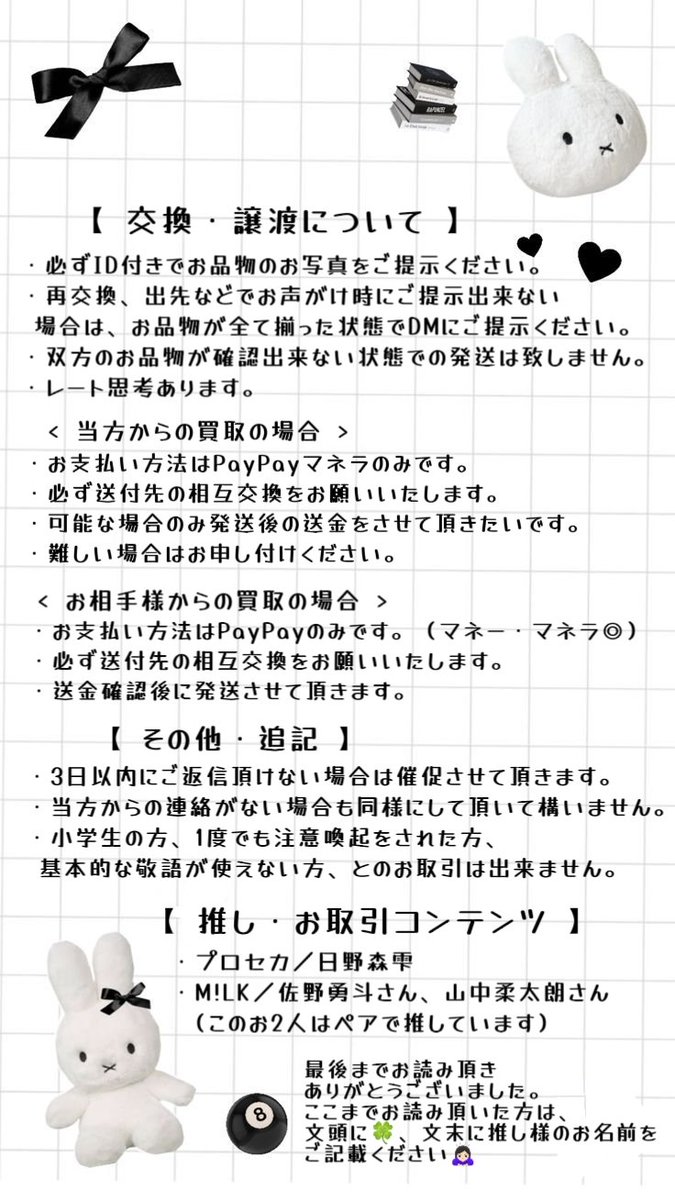 RAPUNZEL
【 交換・譲渡について 】
・必ずID付きでお品物のお写真をご提示ください。
・再交換、出先などでお声がけ時にご提示出来ない
場合は、お品物が全て揃った状態でDMにご提示ください。
・双方のお品物が確認出来ない状態での発送は致しません。
・レート思考あります。
< 当方からの買取の場合 >
・お支払い方法はPayPayマネラのみです。
・必ず送付先の相互交換をお願いいたします。
・可能な場合のみ発送後の送金をさせて頂きたいです。
・難しい場合はお申し付けください。
< お相手様からの買取の場合 >
・お支払い方法はPayPayのみです。（マネー・マネラ◎）
・必ず送付先の相互交換をお願いいたします。
・送金確認後に発送させて頂きます。
【 その他・追記 】
・3日以内にご返信頂けない場合は催促させて頂きます。
・当方からの連絡がない場合も同様にして頂いて構いません。
・小学生の方、1度でも注意喚起をされた方、
基本的な敬語が使えない方、とのお取引は出来ません。
【 推し・お取引コンテンツ 】
・プロセカ／日野森雫
・M!LK／佐野勇斗さん、山中柔太朗さん
（このお2人はペアで推しています）
8
最後までお読み頂き
ありがとうございました。
ここまでお読み頂いた方は、
文頭に🍀、文末に推し様のお名前を
ご記載ください🙇🏻‍♀️